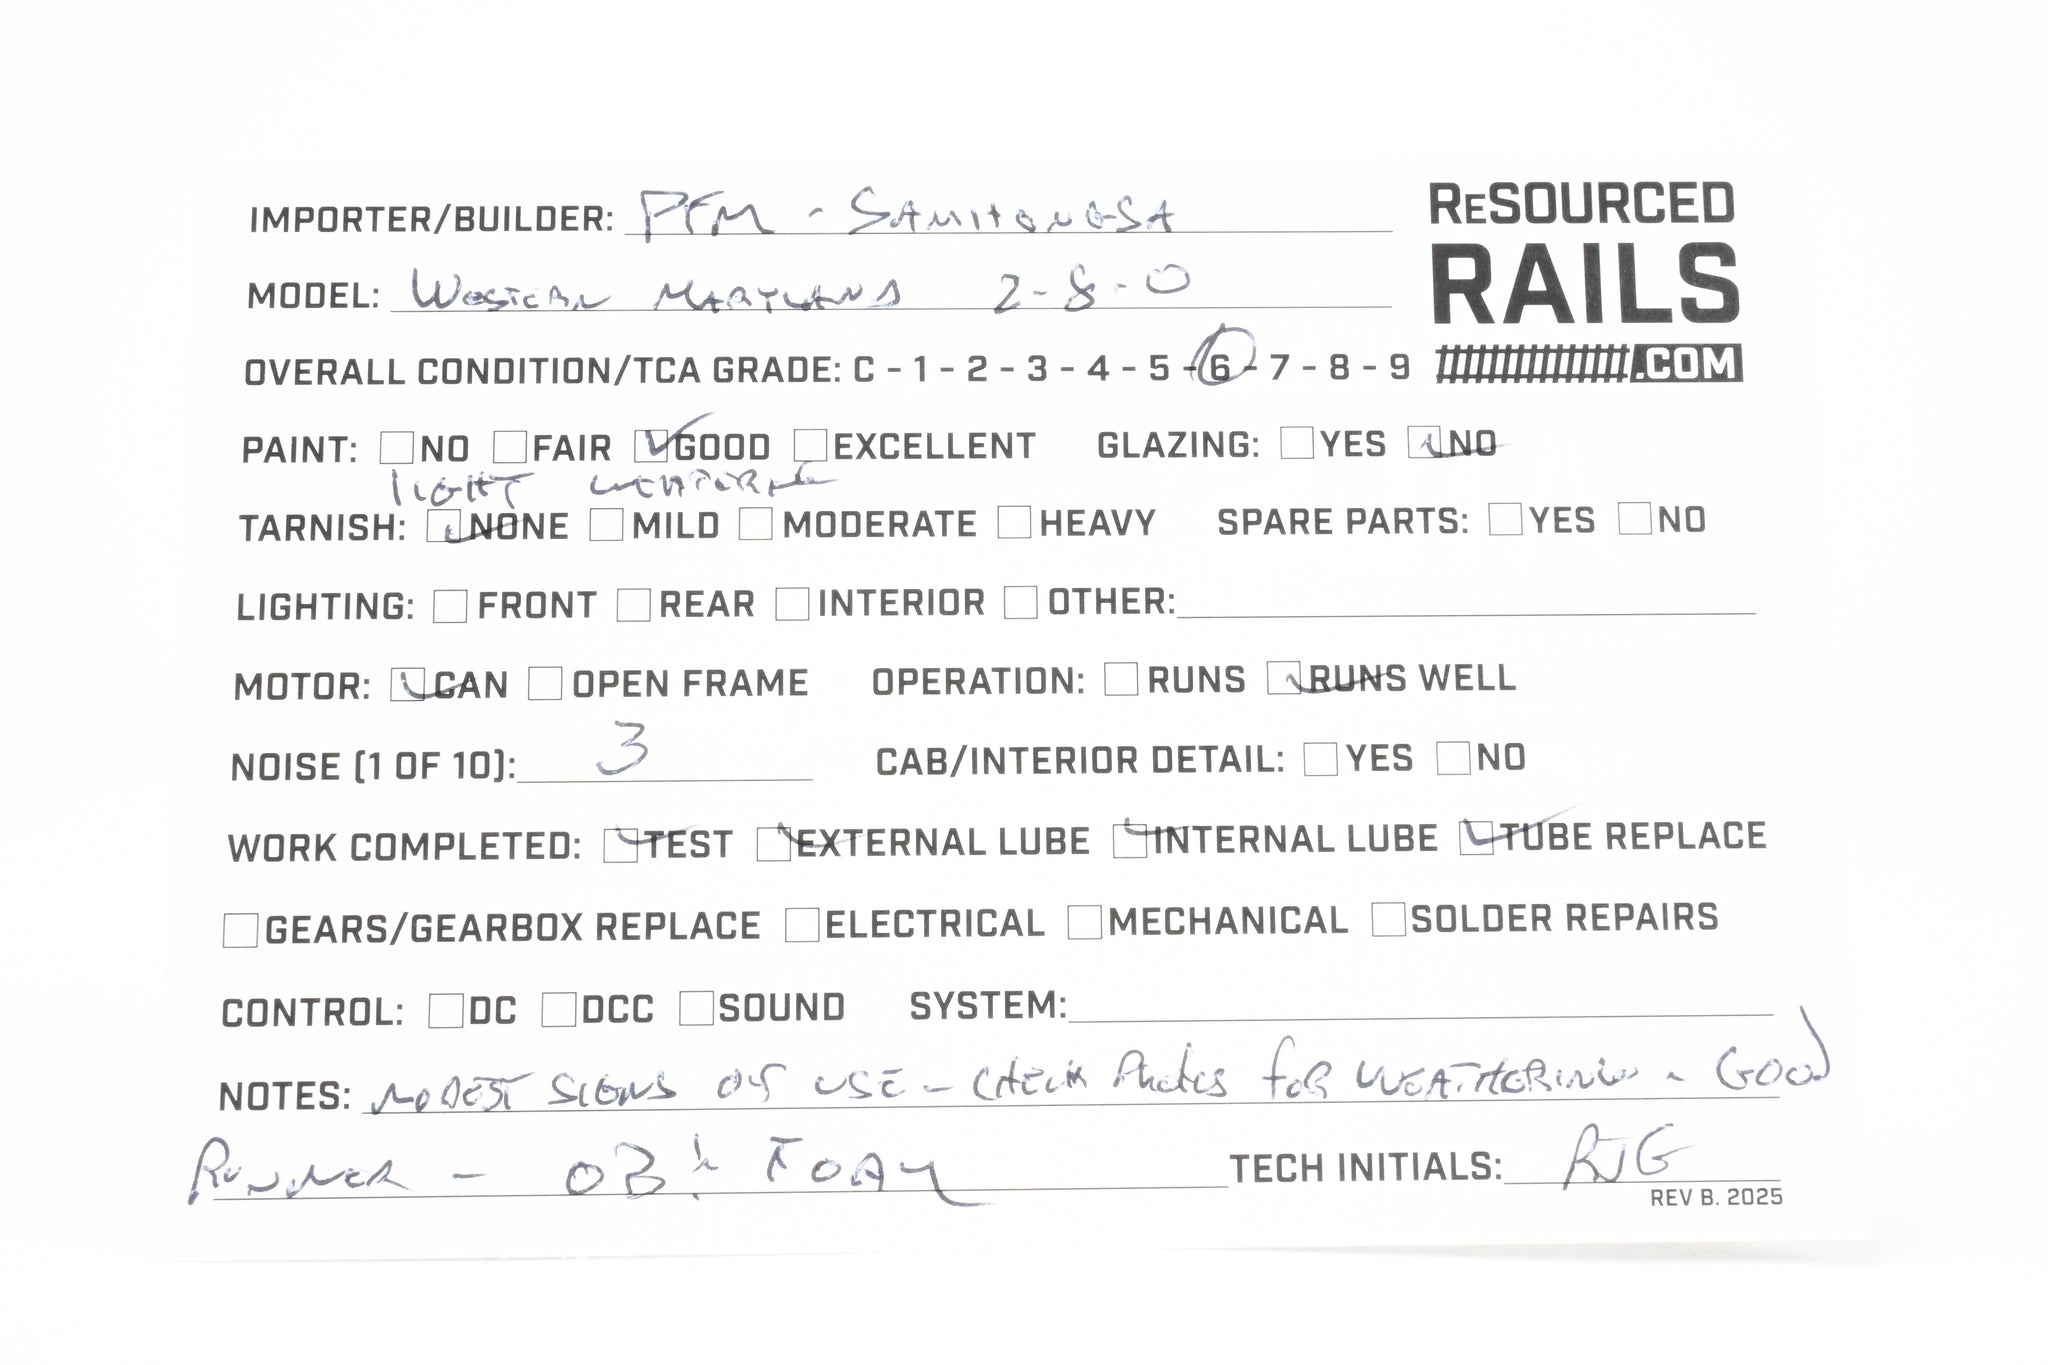 IMPORTER/BUILDER: PFM - SAMHONGSA
ReSOURCED
RAILS
.COM
MODEL: WESTERN MARYLAND 2-8-0
OVERALL CONDITION/TCA GRADE: C - 1 - 2 - 3 - 4 - 5 - 6 - 7 - 8 - 9
PAINT: NO FAIR GOOD EXCELLENT GLAZING: YES NO
LIGHT WEATHERING
TARNISH: NONE MILD MODERATE HEAVY SPARE PARTS: YES NO
LIGHTING: FRONT REAR INTERIOR OTHER:
MOTOR: CAN OPEN FRAME OPERATION: RUNS RUNS WELL
NOISE (1 OF 10): 3 CAB/INTERIOR DETAIL: YES NO
WORK COMPLETED: TEST EXTERNAL LUBE INTERNAL LUBE TUBE REPLACE
GEARS/GEARBOX REPLACE ELECTRICAL MECHANICAL SOLDER REPAIRS
CONTROL: DC DCC SOUND SYSTEM:
NOTES: MODEST SIGNS OF USE - CHECK PHOTOS FOR WEATHERING - GOOD
RUNNER - OB! FOAM TECH INITIALS: RJG
REV B. 2025